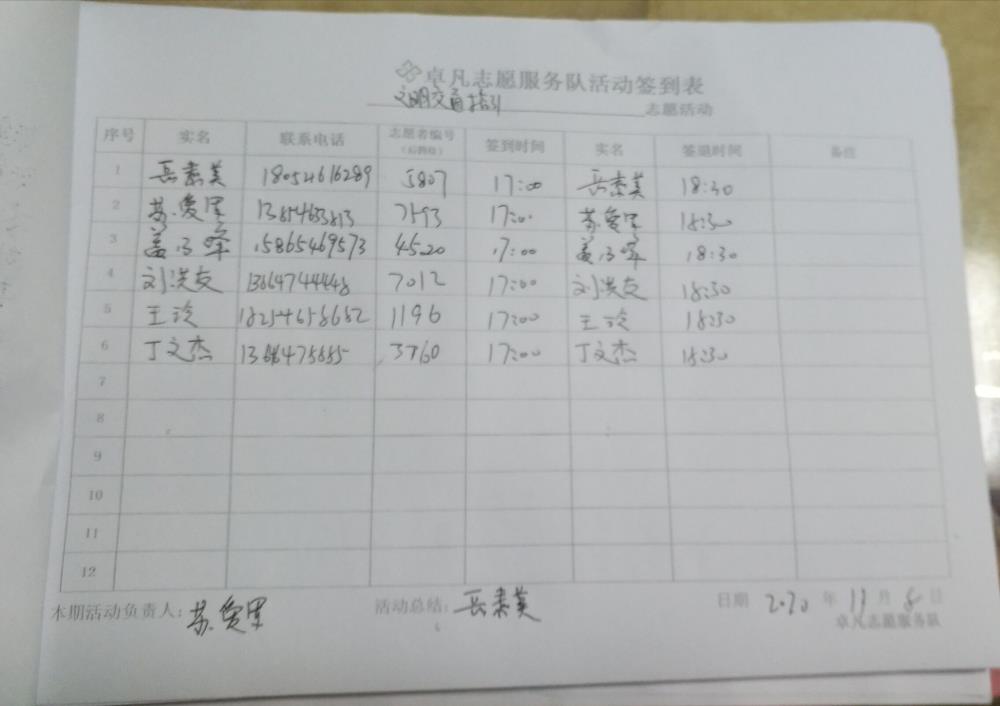 卓凡志愿服务队活动签到表
文明交通指引 志愿活动
序号 实名 联系电话 志愿者编号(后四位) 签到时间 实名 签退时间 备注
1 岳素美 18054616289 5807 17:00 岳素美 18:30
2 苏爱军 7193 17:00 苏爱军 18:30
3 姜 峰 15865469573 4520 17:00 姜 峰 18:30
4 刘洪友 13647444448 7012 17:00 刘洪友 18:30
5 王玲 18254658682 1196 17:00 王玲 18:30
6 丁文杰 3760 17:00 丁文杰 18:30
7
8
9
10
11
12
本期活动负责人: 苏爱军 活动总结: 岳素美 日期 2020 年 11 月 8 日
卓凡志愿服务队